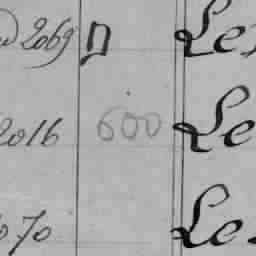 2069 П Le
2016 600 Le
70 Le